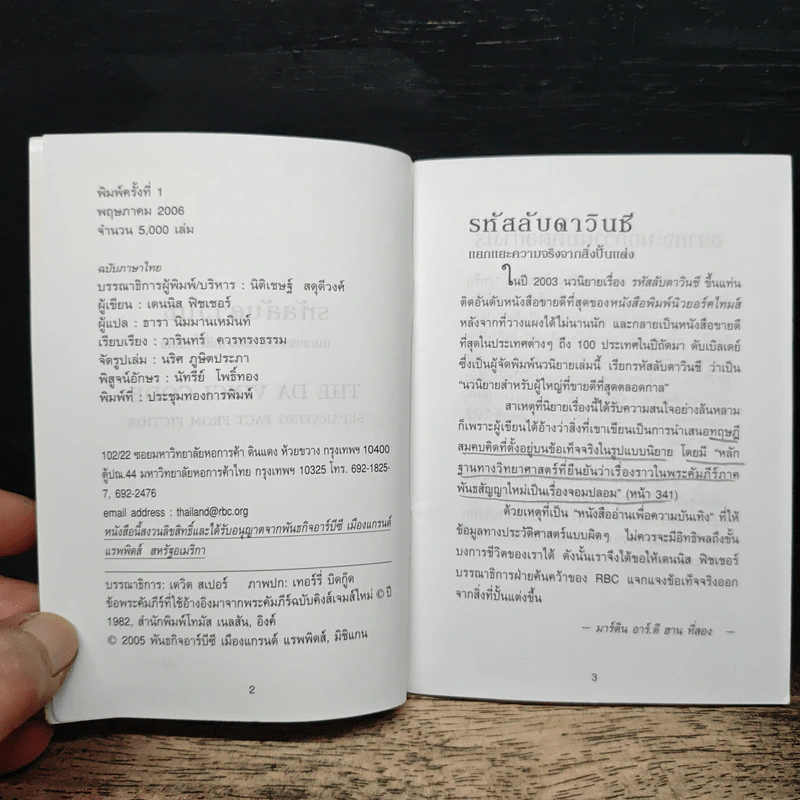 พิมพ์ครั้งที่ 1
พฤษภาคม 2006
จำนวน 5,000 เล่ม
ฉบับภาษาไทย
บรรณาธิการผู้พิมพ์/บริหาร : นิติเชษฐ์ สตุดีวงศ์
ผู้เขียน : เดนนิส ฟิชเชอร์
ผู้แปล : ธารา นิมมานเหมินท์
เรียบเรียง : วารินทร์ ควรทรงธรรม
จัดรูปเล่ม : นริศ ภูษิตประภา
พิสูจน์อักษร : นัทรีย์ โพธิ์ทอง
พิมพ์ที่ : ประชุมทองการพิมพ์
102/22 ซอยมหาวิทยาลัยหอการค้า ดินแดง ห้วยขวาง กรุงเทพฯ 10400
ตู้ปณ.44 มหาวิทยาลัยหอการค้าไทย กรุงเทพฯ 10325 โทร. 692-1825-
7, 692-2476
email address : thailand@rbc.org
หนังสือนี้สงวนลิขสิทธิ์และได้รับอนุญาตจากพันธกิจอาร์บีซี เมืองแกรนด์
แรพพิดส์ สหรัฐอเมริกา
บรรณาธิการ: เดวิด สเปอร์ ภาพปก: เทอร์รี่ บิดกู๊ด
ข้อพระคัมภีร์ที่ใช้อ้างอิงมาจากพระคัมภีร์ฉบับคิงส์เจมส์ใหม่ © ปี
1982, สำนักพิมพ์โทมัส เนลสัน, อิงค์
© 2005 พันธกิจอาร์บีซี เมืองแกรนด์ แรพพิดส์, มิชิแกน
2
รหัสลับดาวินชี
แยกแยะความจริงจากสิ่งปั้นแต่ง
ในปี 2003 นวนิยายเรื่อง รหัสลับดาวินชี ขึ้นแท่น
ติดอันดับหนังสือขายดีที่สุดของหนังสือพิมพ์นิวยอร์คไทมส์
หลังจากที่วางแผงได้ไม่นานนัก และกลายเป็นหนังสือขายดี
ที่สุดในประเทศต่างๆ ถึง 100 ประเทศในปีถัดมา ดับเบิลเดย์
ซึ่งเป็นผู้จัดพิมพ์นวนิยายเล่มนี้ เรียกรหัสลับดาวินชี ว่าเป็น
"นวนิยายสำหรับผู้ใหญ่ที่ขายดีที่สุดตลอดกาล"
สาเหตุที่นิยายเรื่องนี้ได้รับความสนใจอย่างล้นหลาม
ก็เพราะผู้เขียนได้อ้างว่าสิ่งที่เขาเขียนเป็นการนำเสนอทฤษฎี
สมคบคิดที่ตั้งอยู่บนข้อเท็จจริงในรูปแบบนิยาย โดยมี "หลัก
ฐานทางวิทยาศาสตร์ที่ยืนยันว่าเรื่องราวในพระคัมภีร์ภาค
พันธสัญญาใหม่เป็นเรื่องจอมปลอม" (หน้า 341)
ด้วยเหตุที่เป็น "หนังสืออ่านเพื่อความบันเทิง" ที่ให้
ข้อมูลทางประวัติศาสตร์แบบผิดๆ ไม่ควรจะมีอิทธิพลถึงขั้น
บงการชีวิตของเราได้ ดังนั้นเราจึงได้ขอให้เดนนิส ฟิชเชอร์
บรรณาธิการฝ่ายค้นคว้าของ RBC แจกแจงข้อเท็จจริงออก
จากสิ่งที่ปั้นแต่งขึ้น
— มาร์ติน อาร์.ดี ฮาน ที่สอง —
3